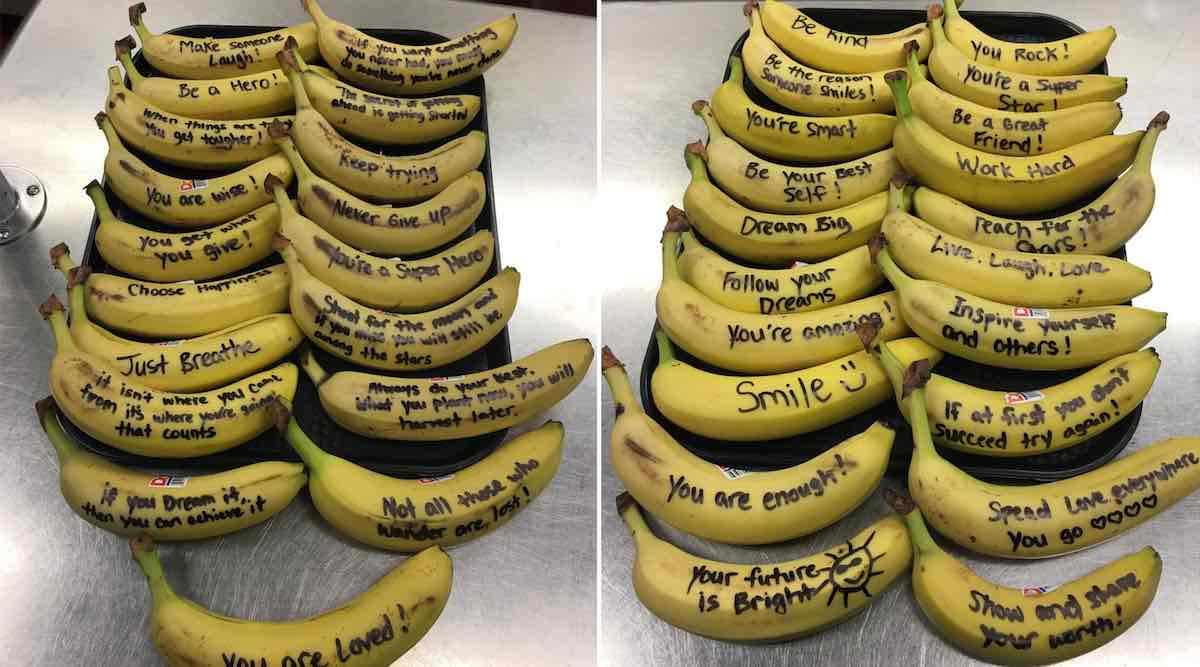 Make someone
Laugh!
Be a Hero!
When things are
You get tougher!
You are wise!
You get what
you give!
Choose Happiness
Just Breathe
it isn't where you came
from its where you're going
that counts
if you Dream it,
then you can achieve it
If you want something
you never had, you must
do something you've never done
The secret of getting
ahead is getting started
Keep trying
Never Give up
You're a Super Hero
Shoot for the moon and
if you miss you will still be
among the stars
Always do your best
What you plant now, you will
harvest later.
Not all those who
wander are lost!
You are Loved!
Be Kind
Be the reason
Someone Smiles!
You're Smart
Be your Best
Self!
Dream Big
Follow your
Dreams
You're amazing!
Smile
You are enough
Your future
is Bright
You Rock!
You're a Super
Star!
Be a Great
Friend!
Work Hard
reach for the
stars!
Live, Laugh, Love
Inspire yourself
and others!
If at first you don't
Succeed try again!
Spead Love everywhere
You go
Show and share
your worth!